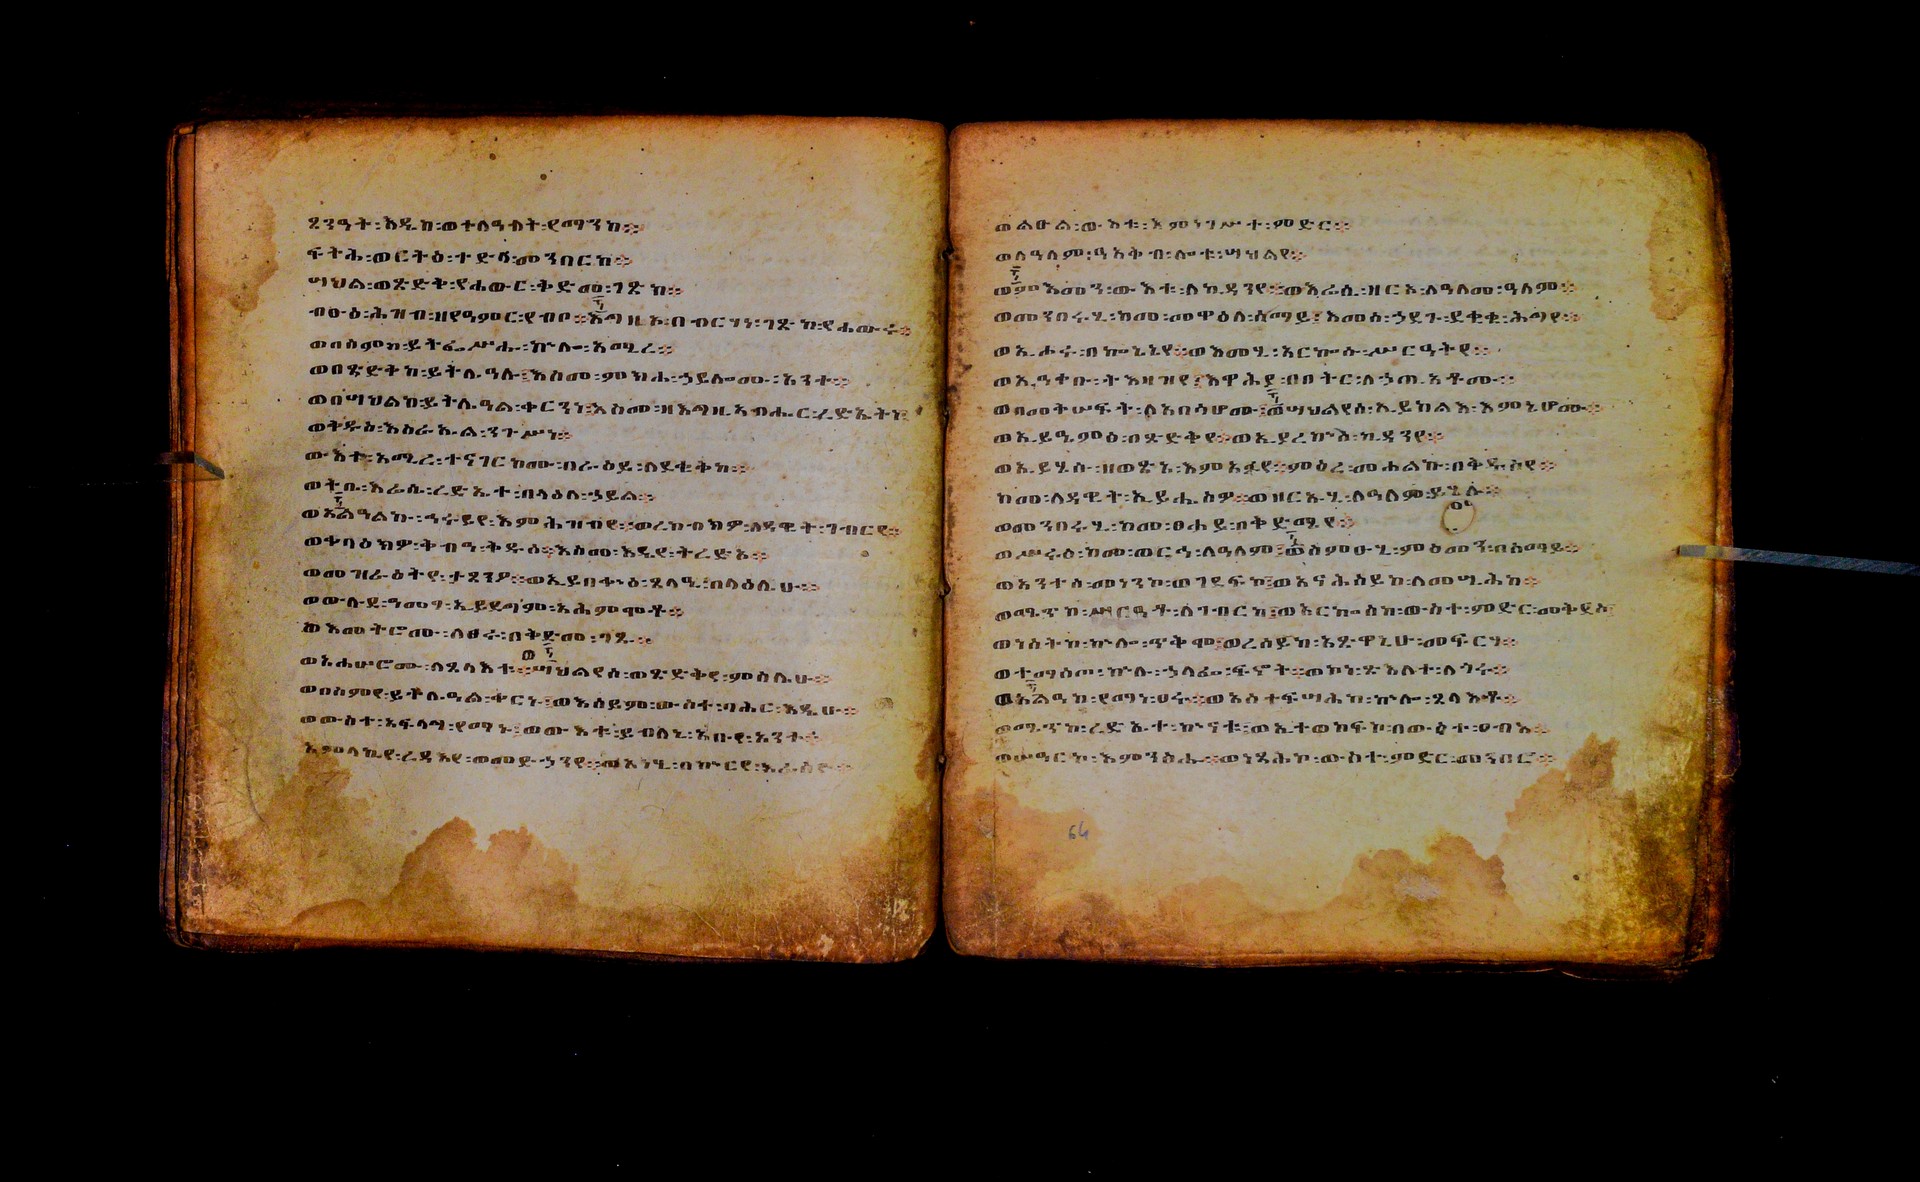 ጸንዓት፡እዴከ፡ወተለዓለት፡የማንከ።
ፍትሕ፡ወርትዕ፡ተድላ፡መንበርከ።
ሣህል፡ወጽድቅ፡የሐውር፡ቅድመ፡ገጽከ።
ብፁዕ፡ሕዝብ፡ዘየዓምር፡የብቦ።እግዚኦ፡በብርሃነ፡ገጽከ፡የሐውሩ።
ወበስምከ፡ይትፌሥሑ፡ኵሎ፡አሚረ።
ወበጽድቅከ፡ይትሌዓሉ።እስመ፡ምክሐ፡ኃይሎሙ፡አንተ።
ወበሣህልከ፡ይትሌዓል፡ቀርንነ፡እስመ፡ዘእግዚአብሔር፡ረድኤትነ
ወቅዱስ፡እስራኤል፡ንጉሥነ።
ውእተ፡አሚረ፡ተናገርከሙ፡በራዕይ፡ለደቂቅከ።
ወትቤ፡እሬሲ፡ረድኤተ፡በላዕለ፡ኃይል።
ወአልዓልኩ፡ኅሩይየ፡እምሕዝብየ።ወረከብክዎ፡ለዳዊት፡ገብርየ።
ወቀባዕክዎ፡ቅብዓ፡ቅዱሰ።እስመ፡እዴየ፡ትረድኦ።
ወመዝራዕትየ፡ታጸንዖ።ወኢይበቍዕ፡ጸላዒ፡በላዕሌሁ።
ወውሉደ፡ዓመፃ፡ኢይደግም፡አሕምሞቶ።
ወእመትሮሙ፡ለፀሩ፡በቅድመ፡ገጹ።
ወአሐሥሮሙ፡ለጸላእቱ።ወሣህልየሰ፡ወጽድቅየ፡ምስሌሁ።
ወበስምየ፡ይትሌዓል፡ቀርኑ።ወእሰይም፡ውስተ፡ባሕር፡እዴሁ።
ወውስተ፡አፍላግ፡የማኑ።ወውእቱ፡ይብለኒ፡አቡየ፡አንተ።
አምላኪየ፡ረዳእየ፡ወመድኃንየ።ወአነሂ፡በኵርየ፡እሬስዮ።
ወልዑል፡ውእቱ፡እምነገሥተ፡ምድር።
ወለዓለም፡ዓአቅብ፡ሎቱ፡ሣህልየ።
ወምእመን፡ውእቱ፡ለኪዳንየ።ወእሬሲ፡ዘርኦ፡ለዓለመ፡ዓለም።
ወመንበሩሂ፡ከመ፡መዋዕለ፡ሰማይ።እመሰ፡ኃደጉ፡ደቂቁ፡ሕግየ።
ወኢሖሩ፡በኰኒኒየ።ወእመሂ፡አርኰሱ፡ሥርዓትየ።
ወኢዓቀቡ፡ትእዛዝየ።እዋሕያ፡በበትር፡ለኃጢአቶሙ።
ወበመትሠፍት፡ለአበሳሆሙ።ወሣህልየሰ፡ኢይከልእ፡እምኔሆሙ።
ወኢይዔምፅ፡በጽድቅየ።ወኢያረኵስ፡ኪዳንየ።
ወኢይሄሱ፡ዘወጽአ፡እምአፉየ።ምዕረ፡መሐልኩ፡በቅዱስየ።
ከመ፡ለዳዊት፡ኢይሔስዎ።ወዘርኡሂ፡ለዓለም፡ይሄሉ።
ወመንበሩሂ፡ከመ፡ፀሐይ፡በቅድሜየ።
ወሥሩዕ፡ከመ፡ወርኅ፡ለዓለም።ወስምዑሂ፡ምዕመን፡በሰማይ።
ወአንተሰ፡መነንኮ፡ወገደፍኮ።ወአናሕሰይኮ፡ለመሢሕከ።
ወሚጥከ፡ሥርዓተ፡ለገብርከ።ወአርኰስከ፡ውስተ፡ምድር፡መቅደሶ
ወነሠትከ፡ኵሎ፡ጥቅሞ።ወረሰይከ፡አጽዋኒሁ፡መፍርሃ።
ወተማሰጦ፡ኵሉ፡ኃላፌ፡ፍኖት።ወኮነ፡ጽእለተ፡ለጎሩ።
ወአልዓከ፡የማነ፡ፀሩ።ወአስተፍሣሕከ፡ኵሎ፡ጸላእቶ።
ወሚጥከ፡ረድኤተ፡ኵናቱ።ወኢተወከፍኮ፡በውስተ፡ፀብእ።
ወሠዓርኮ፡እምንጽሑ።ወነጻሕኮ፡ውስተ፡ምድር፡መንበሮ።
64